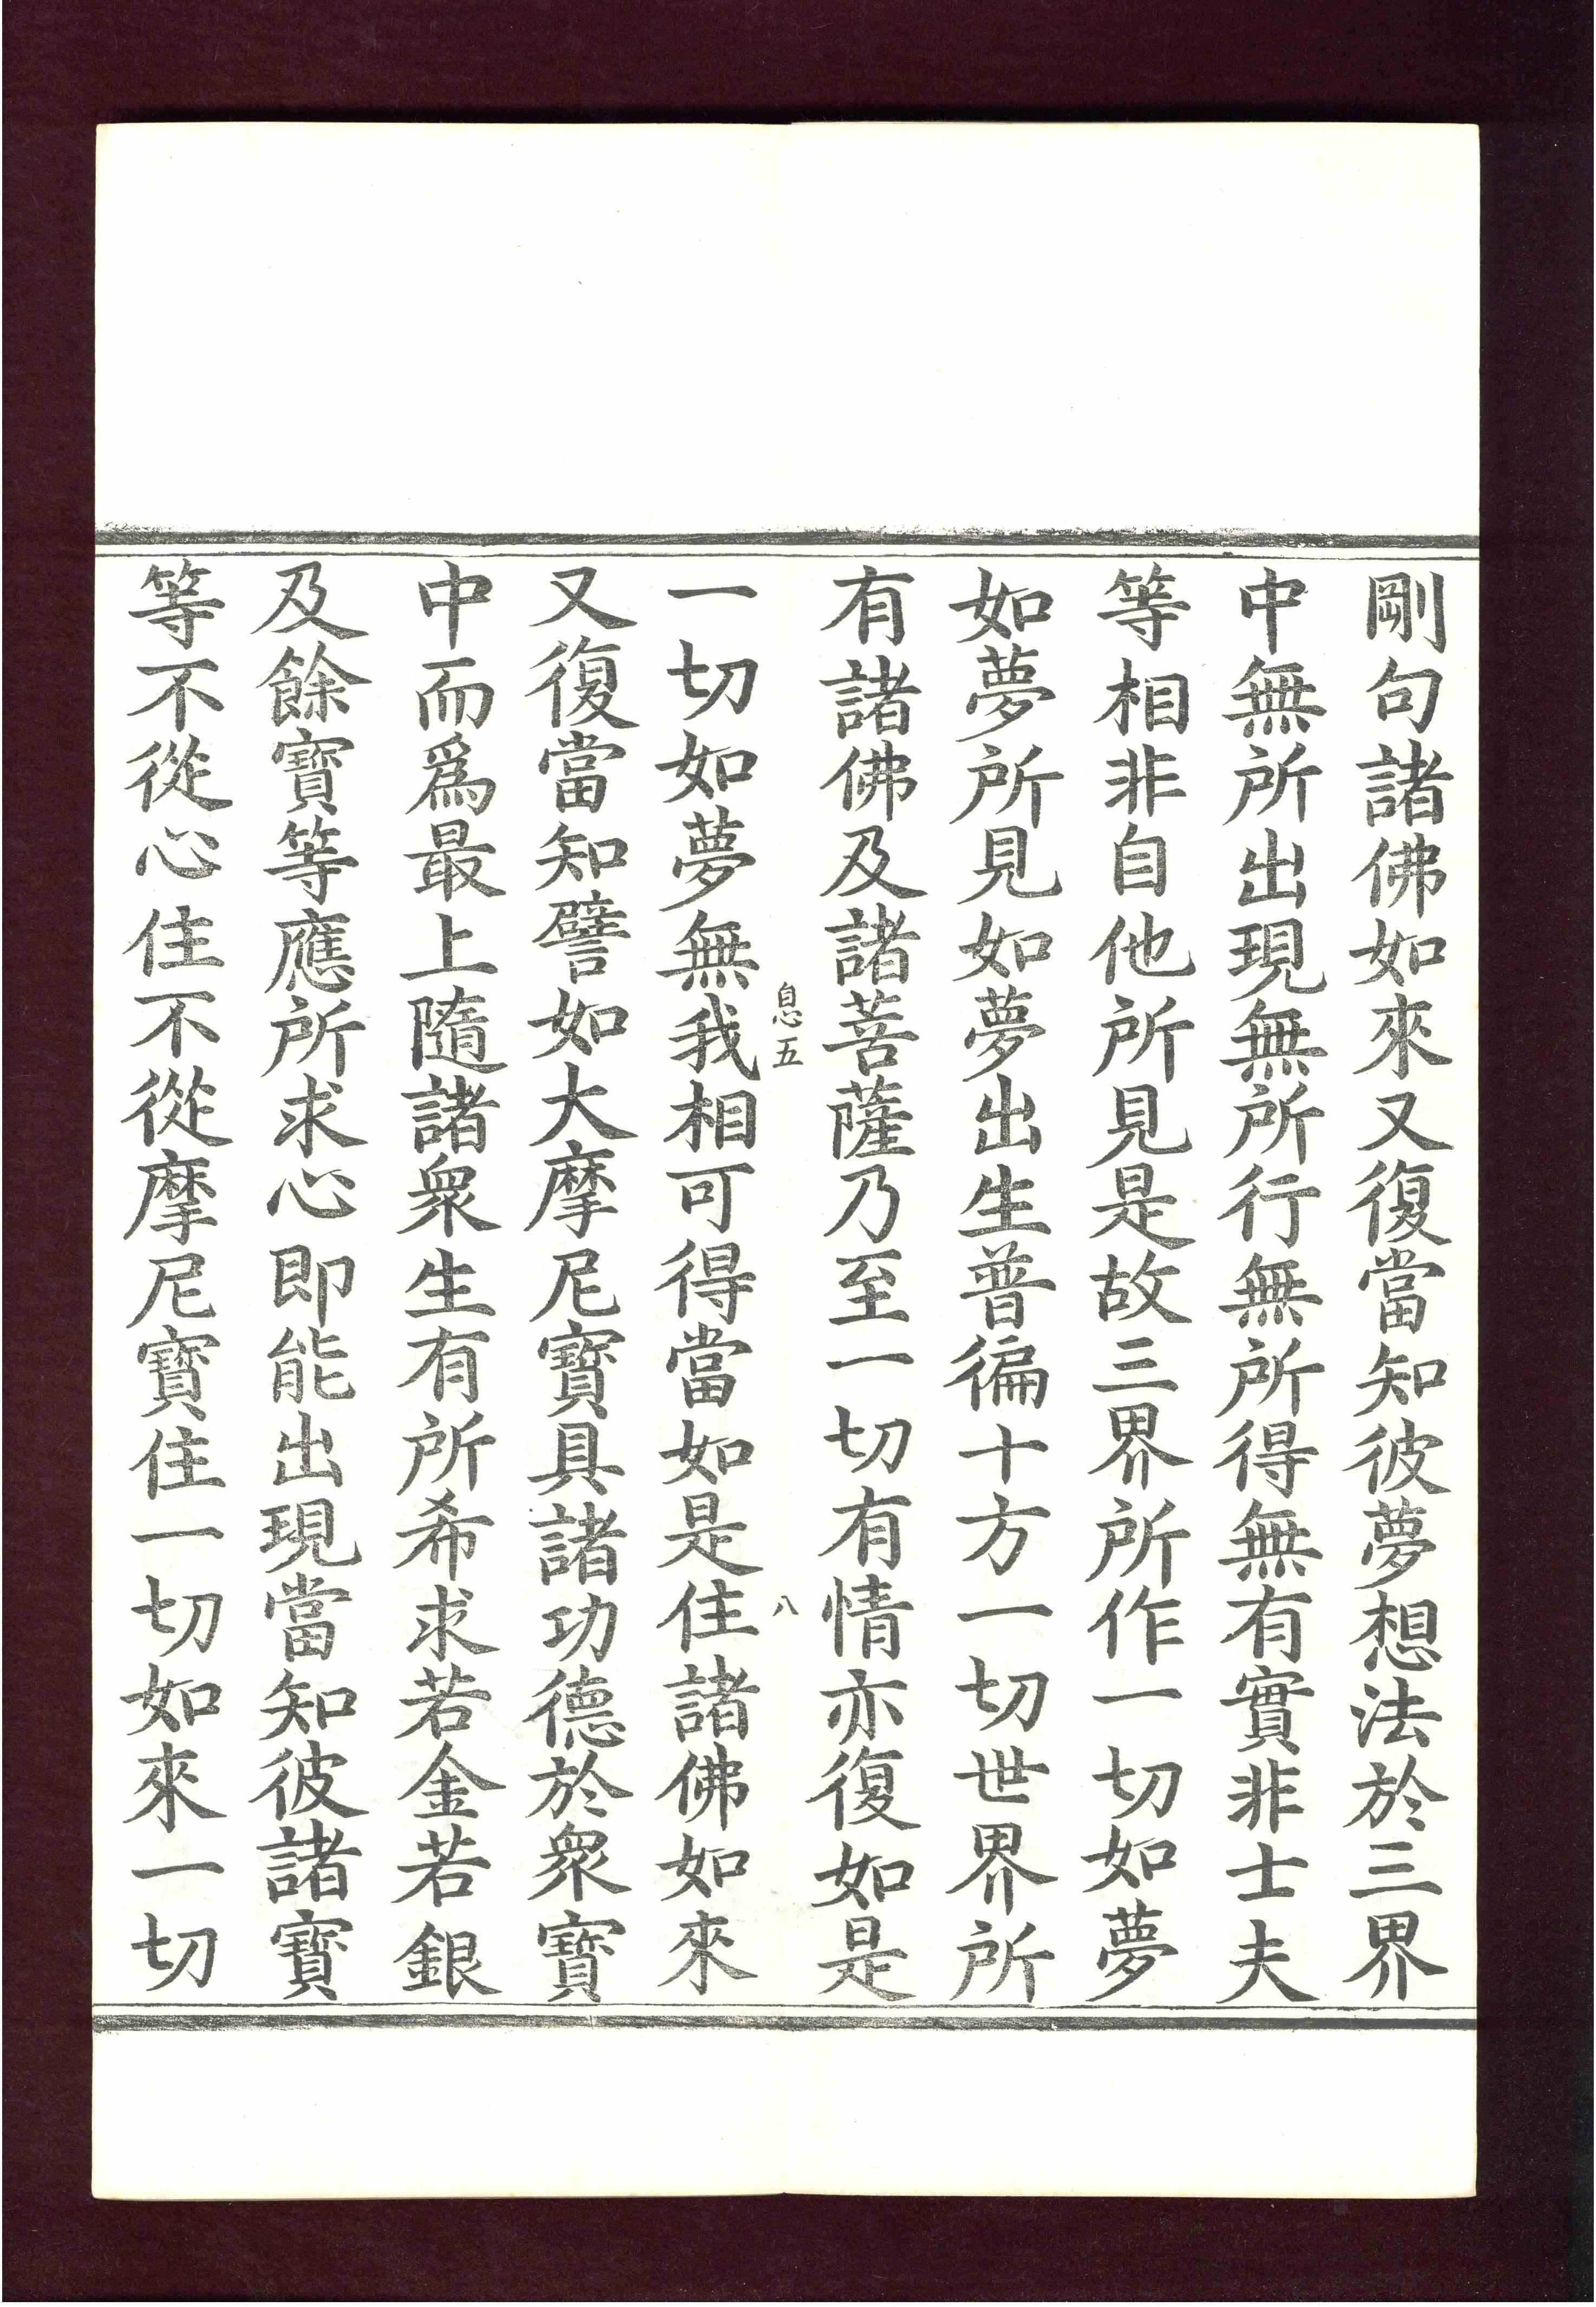 剛句諸佛如來又復當知彼夢想法於三界
中無所出現無所行無所得無有實非士夫
等相非自他所見是故三界所作一切如夢
如夢所見如夢出生普徧十方一切世界所
有諸佛及諸菩薩乃至一切有情亦復如是
息五 八
一切如夢無我相可得當如是住諸佛如來
又復當知譬如大摩尼寶具諸功德於衆寶
中而爲最上隨諸衆生有所希求若金若銀
及餘寶等應所求心即能出現當知彼諸寶
等不從心住不從摩尼寶住一切如來一切